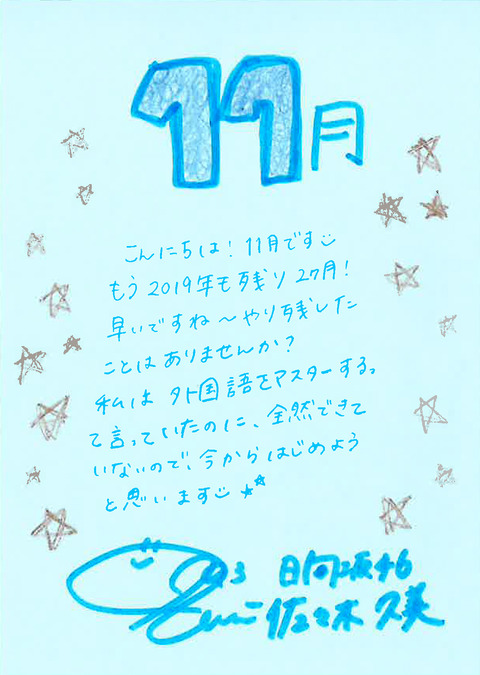 11月
こんにちは!11月です
もう2019年も残り2ヶ月!
早いですね〜やり残した
ことはありませんか?
私は外国語をマスターするっ
て言っていたのに、全然できて
いないので、今からはじめよう
と思います
日向坂46
佐々木久美